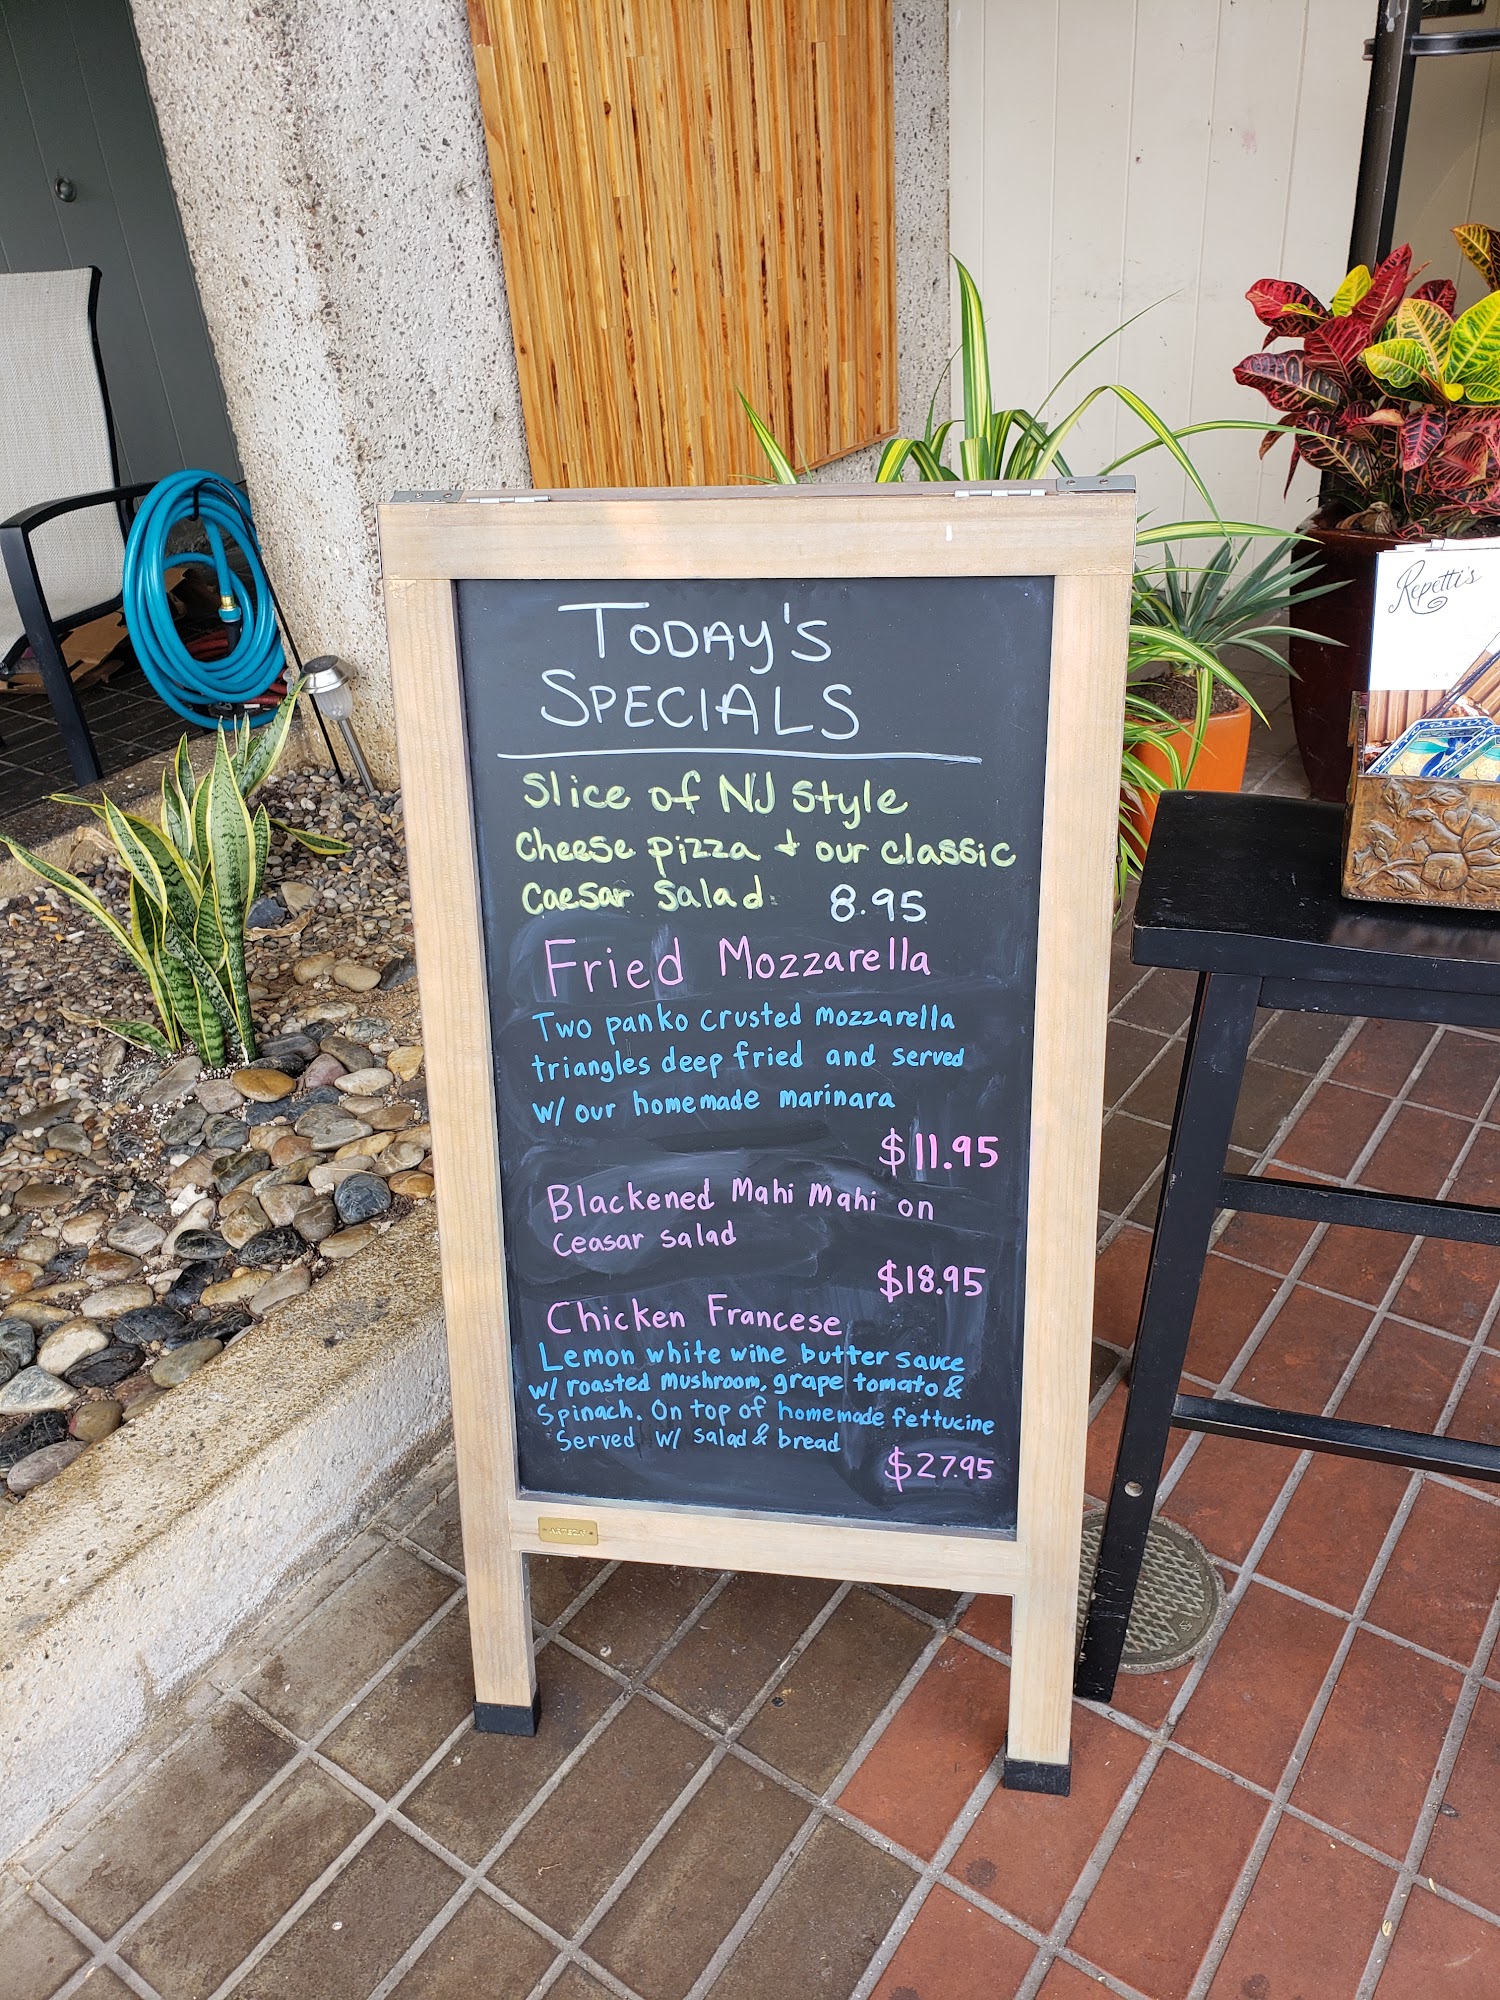 TODAY'S
SPECIALS
Slice of NJ Style
Cheese pizza + our classic
Caesar Salad. 8.95
Fried Mozzarella
Two panko crusted mozzarella
triangles deep fried and served
w/ our homemade marinara
$11.95
Blackened Mahi Mahi on
Ceasar salad
$18.95
Chicken Francese
Lemon white wine butter sauce
w/ roasted mushroom, grape tomato &
Spinach. On top of homemade fettucine
Served w/ salad & bread
$27.95
ARTEZA
Repetti's